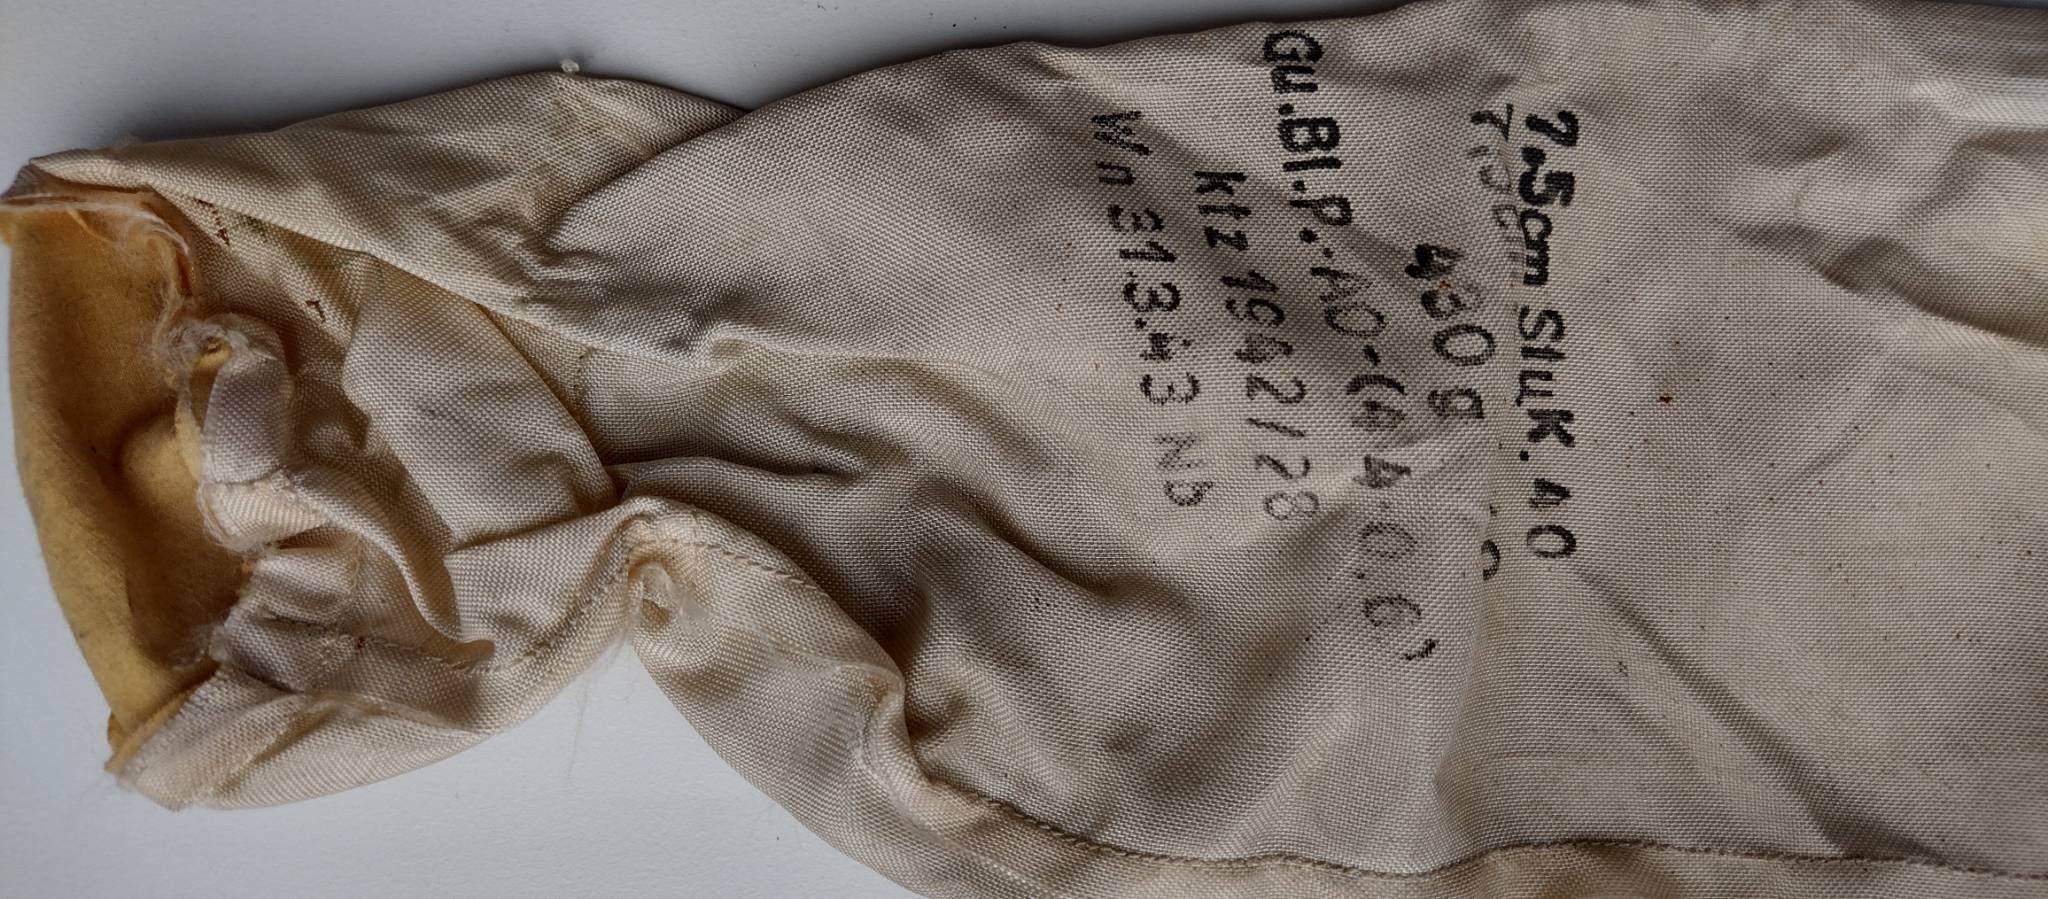 7.5cm Stuk. 40
430g
Gu.Bl.P.-A0-(4·4·0.6)
ktz 1942/28
Wn 21.3.43 Nb